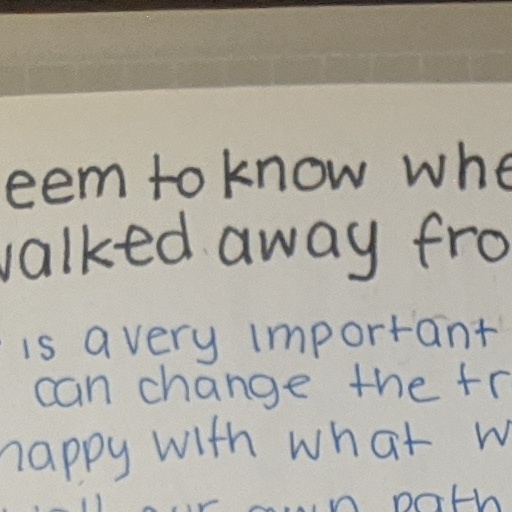 eem to know whe
walked away fro
is a very important
can change the tr
happy with what w
our own path